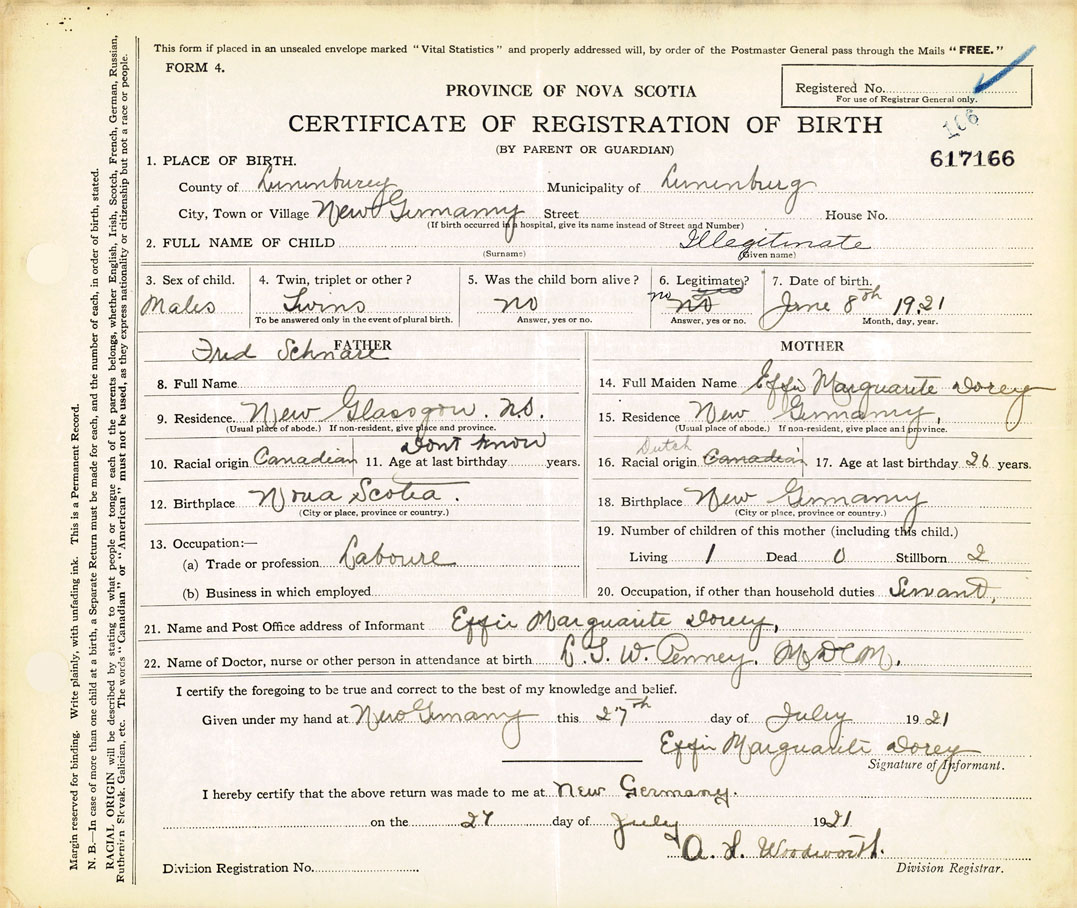 This form if placed in an unsealed envelope marked "Vital Statistics" and properly addressed will, by order of the Postmaster General pass through the Mails "FREE."
FORM 4.
Registered No.
For use of Registrar General only.
PROVINCE OF NOVA SCOTIA
CERTIFICATE OF REGISTRATION OF BIRTH
(BY PARENT OR GUARDIAN)
106
617166
1. PLACE OF BIRTH.
County of Lunenburg Municipality of Lunenburg
City, Town or Village New Germany Street House No.
(If birth occurred in a hospital, give its name instead of Street and Number)
2. FULL NAME OF CHILD Illegitimate
(Surname) (Given name)
3. Sex of child. 4. Twin, triplet or other? 5. Was the child born alive? 6. Legitimate? 7. Date of birth.
Males Twins no no no June 8th 1921
To be answered only in the event of plural birth. Answer, yes or no. Answer, yes or no. Month, day, year.
FATHER MOTHER
Fred Schnare
8. Full Name 14. Full Maiden Name Effie Marguarite Dorey
9. Residence New Glasgow. N.S. 15. Residence New Germany,
(Usual place of abode.) If non-resident, give place and province. (Usual place of abode.) If non-resident, give place and province.
Dont know Dutch
10. Racial origin Canadian 11. Age at last birthday years. 16. Racial origin Canadain 17. Age at last birthday 26 years.
12. Birthplace Nova Scotia. 18. Birthplace New Germany
(City or place, province or country.) (City or place, province or country.)
19. Number of children of this mother (including this child.)
13. Occupation:—
(a) Trade or profession Laboure Living 1 Dead 0 Stillborn 2
(b) Business in which employed 20. Occupation, if other than household duties Servant,
21. Name and Post Office address of Informant Effie Marguarite Dorey,
22. Name of Doctor, nurse or other person in attendance at birth W. Penney. M.D.C.M.
I certify the foregoing to be true and correct to the best of my knowledge and belief.
Given under my hand at New Germany this 27th day of July 1921
Effie Marguarite Dorey
Signature of Informant.
I hereby certify that the above return was made to me at New Germany.
on the 27 day of July 1921
A. H. Woodworth.
Division Registration No. Division Registrar.
Margin reserved for binding. Write plainly, with unfading ink. This is a Permanent Record.
N. B.—In case of more than one child at a birth, a Separate Return must be made for each, and the number of each, in order of birth, stated.
RACIAL ORIGIN will be described by stating to what people or tongue each of the parents belongs, whether English, Irish, Scotch, French, German, Russian,
Ruthenian, Slovak, Galician, etc. The words "Canadian" or "American" must not be used, as they express nationality or citizenship but not a race or people.